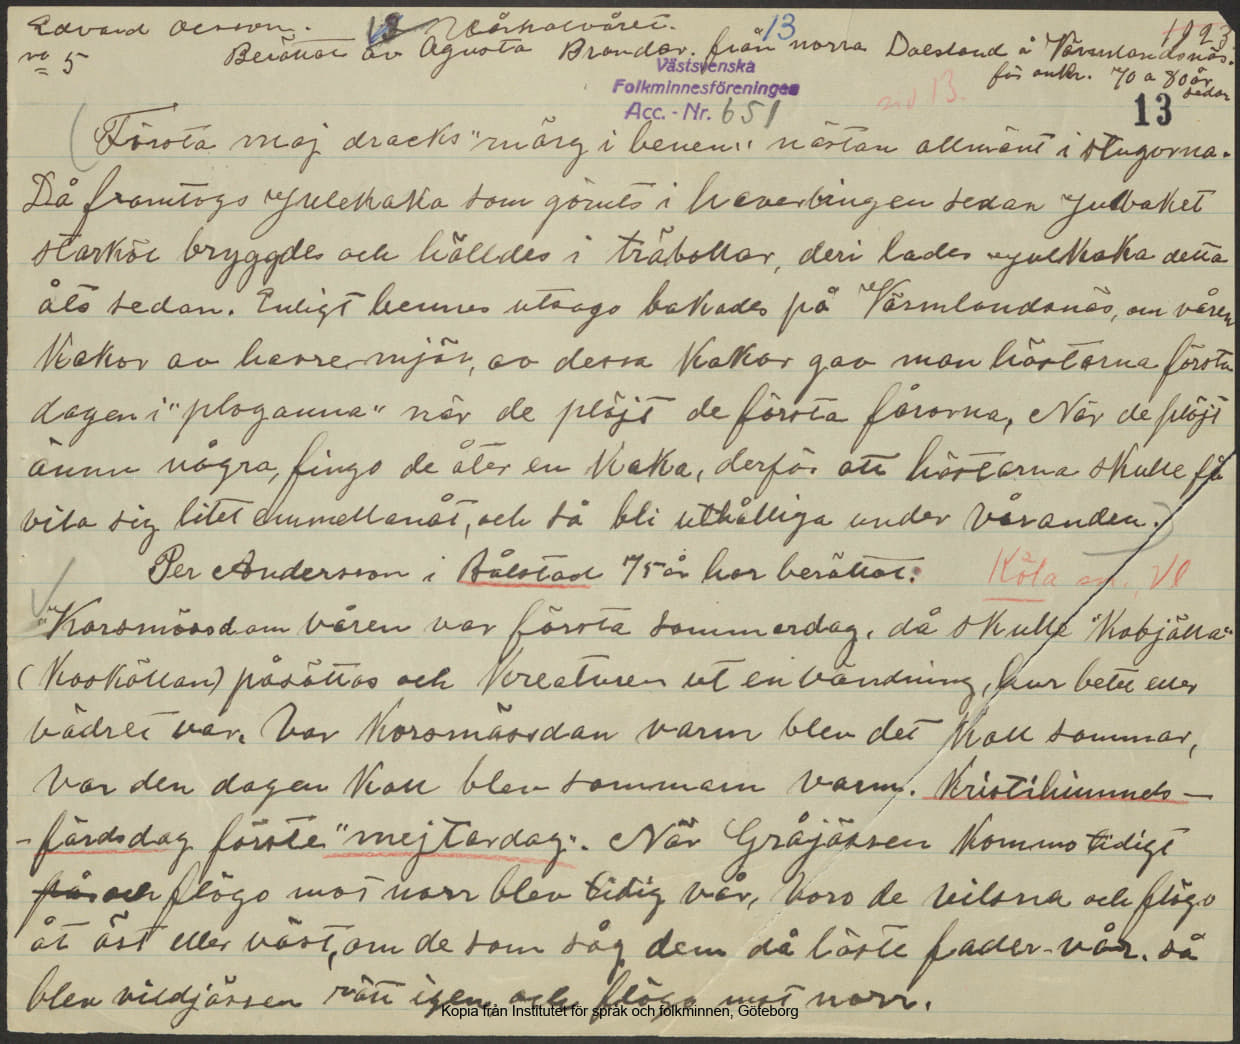 Edvard Olsson. 13 Vårkalvåret. 13 1923.
no 5 Berättat av Agusta Brandar. från norra Dalsland å Värmlandsnäs.
för omkr. 70 a 80 år sedan
Västsvenska
Folkminnesföreningen
Acc. - Nr. 651
13
Första maj dracks "märg i benen" nästan allmänt i stugorna.
Då framtogs julekaka som gömts i haverbingen sedan julbaket
starköl bryggdes och hälldes i träbollar, deri lades julkaka detta
åts sedan. Enligt hennes utsago bakades på Värmlandsnäs, om våren
Kakor av havremjöl, av dessa Kakor gav man hästarna första
dagen i "ploganna" när de plöjt de första fårorna, När de plöjt
ännu några, fingo de åter en Kaka, derför att hästarna skulle få
vila sig litet emmellanåt, och så bli uthålliga under våranden.
Per Andersson i Bålstad 75 år har berättat: Köla sn, Vl
"Korsmässdam våren var första sommardag, då skulle "Kobjälla"
(Koskällan) påsättas och Kreaturen ut en vändning, hur betet eller
vädret var. Var Korsmässdan varm blev det Kall sommar,
var den dagen Kall blev sommarn varm. Kristihimmels-
-färdsdag förste "mejtardag". När Gråjässen Kommo tidigt
på och flögo mot norr blev tidig vår, voro de vilsna och flögo
åt öst eller väst, om de som såg dem då läste fader-vår. så
blev vildjässen rätt igen och flögo mot norr.
Kopia från Institutet för språk och folkminnen, Göteborg